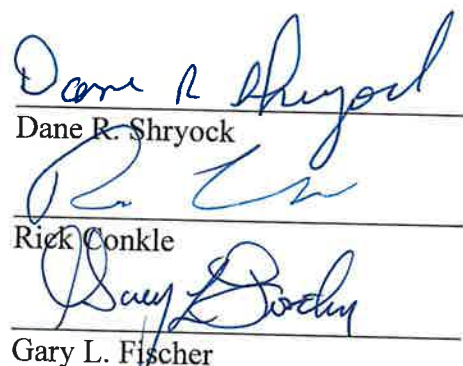 Dane R Shryock
Dane R. Shryock
Rick Conkle
Gary L Fischer
Gary L. Fischer